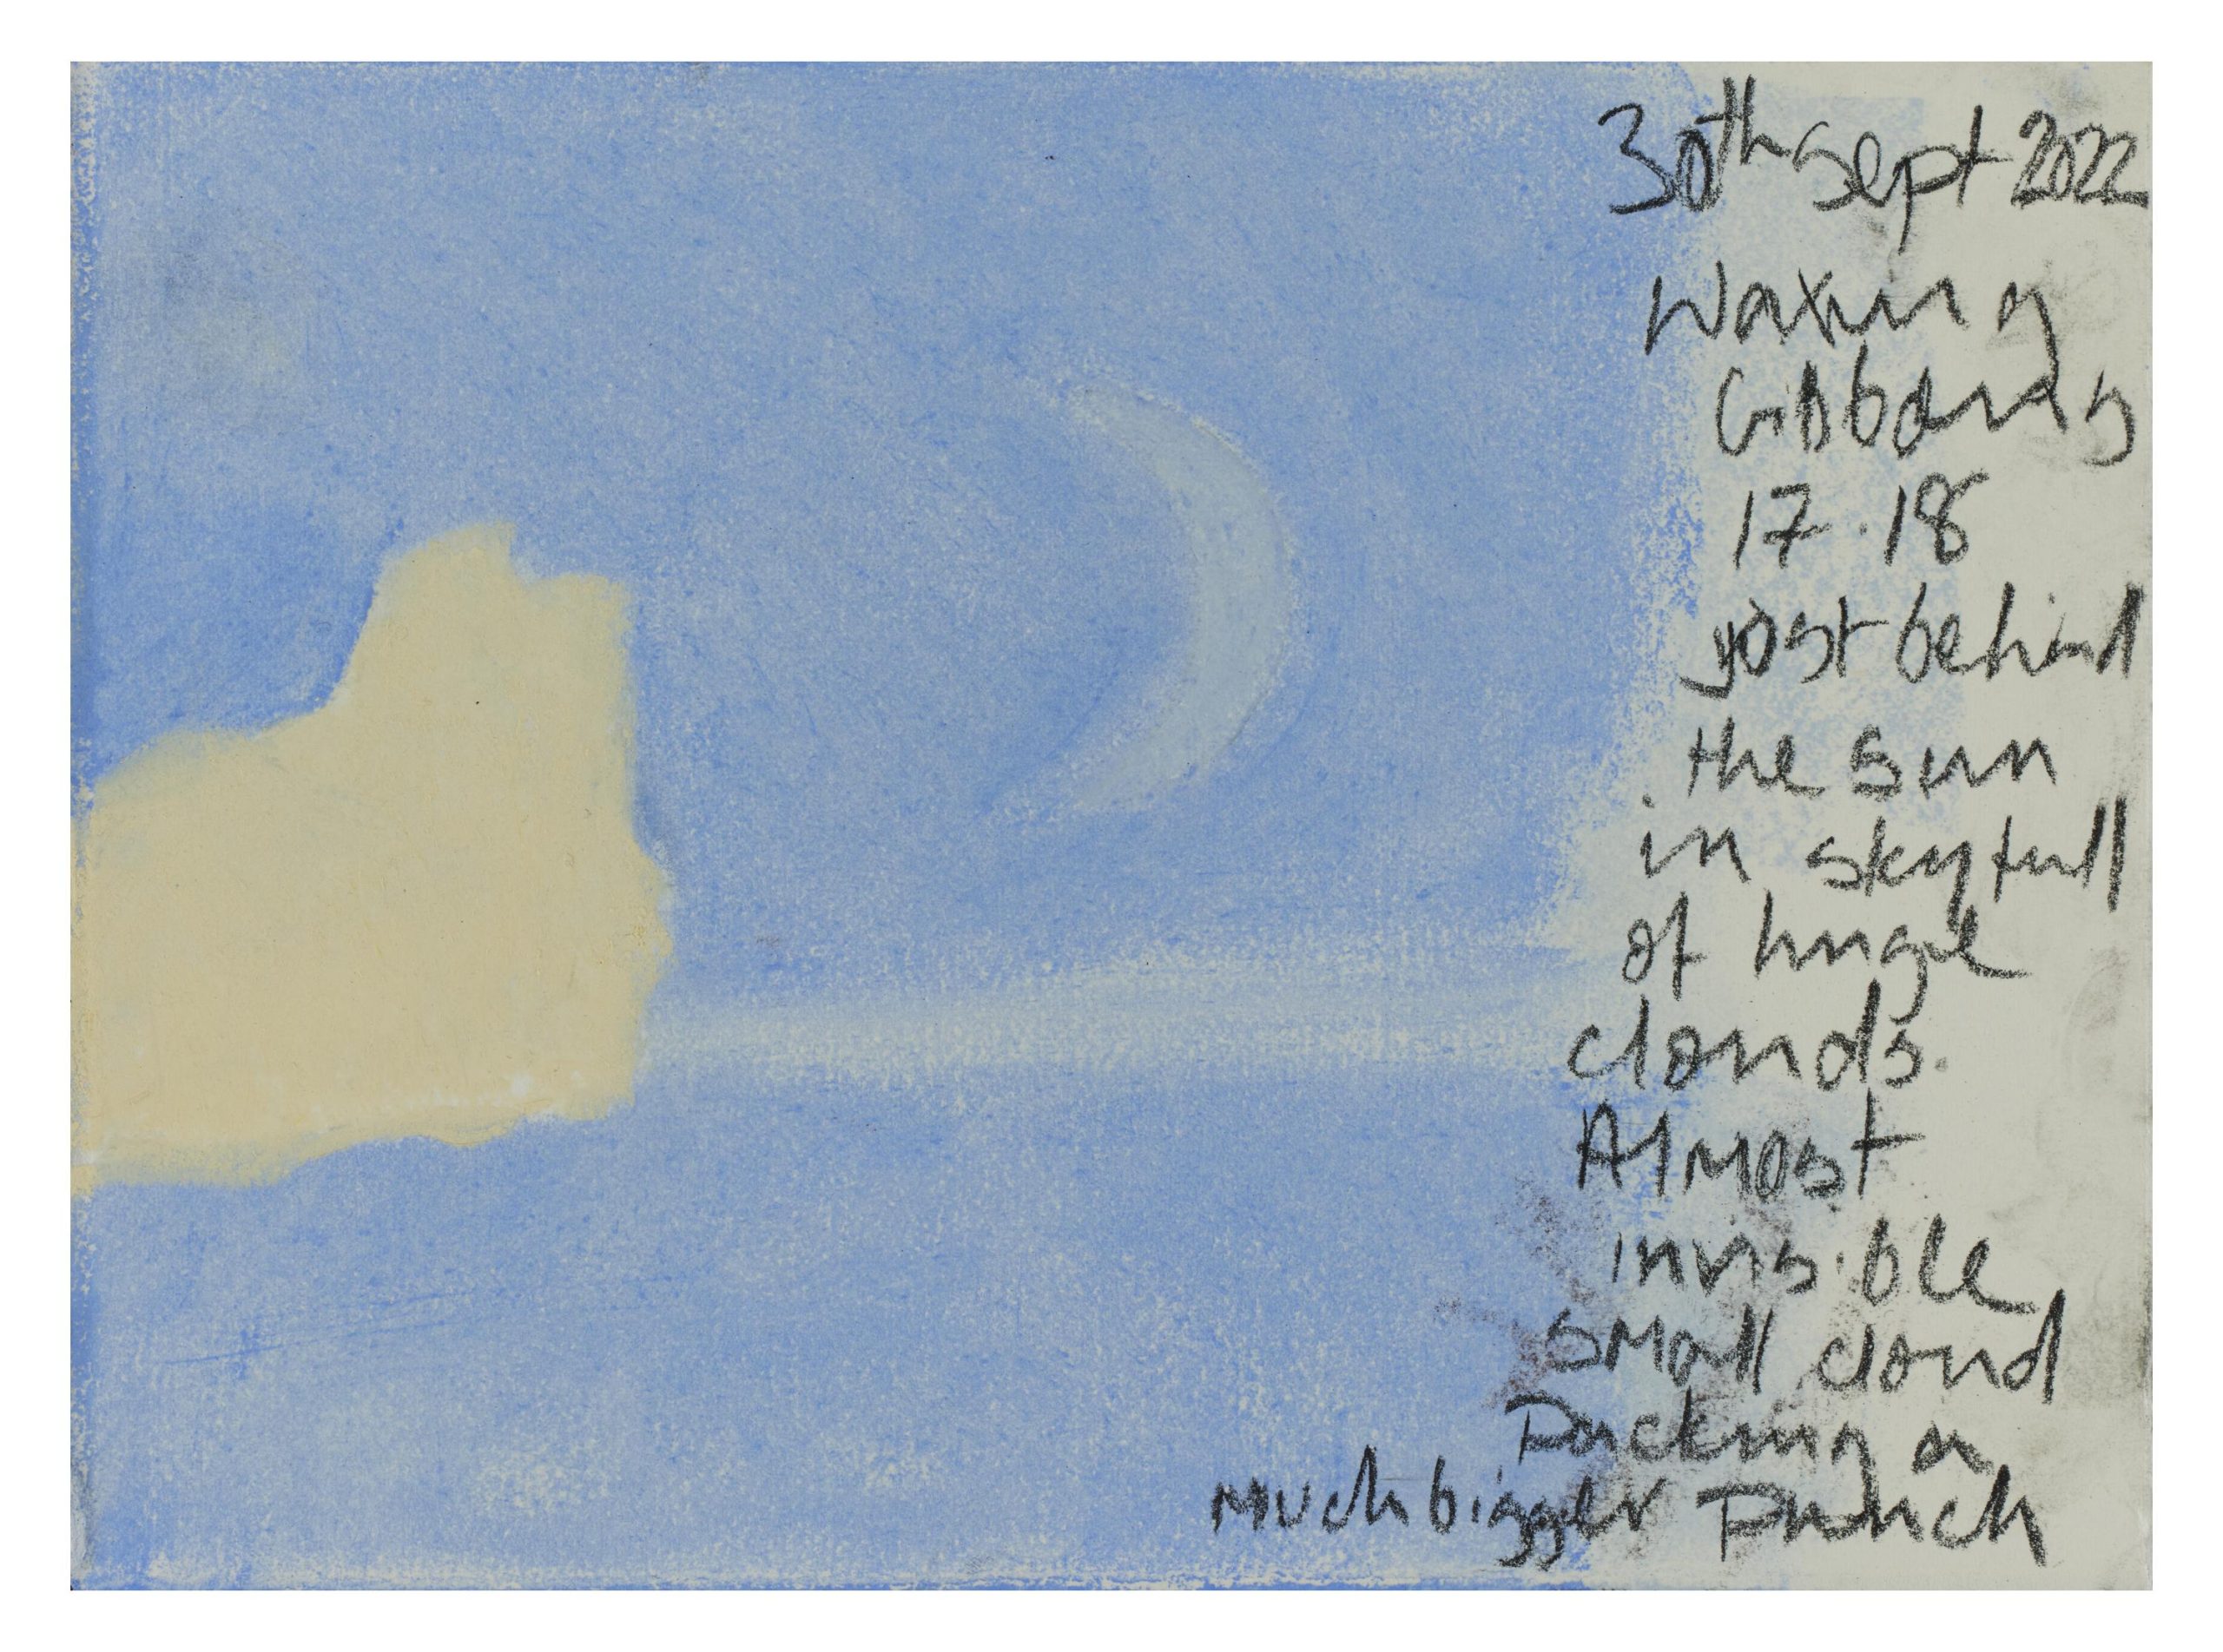 30th Sept 2022
Waxing
Gibbous
17.18
just behind
the sun
in sky full
of huge
clouds.
Almost
invisible
small cloud
Packing a
much bigger Punch